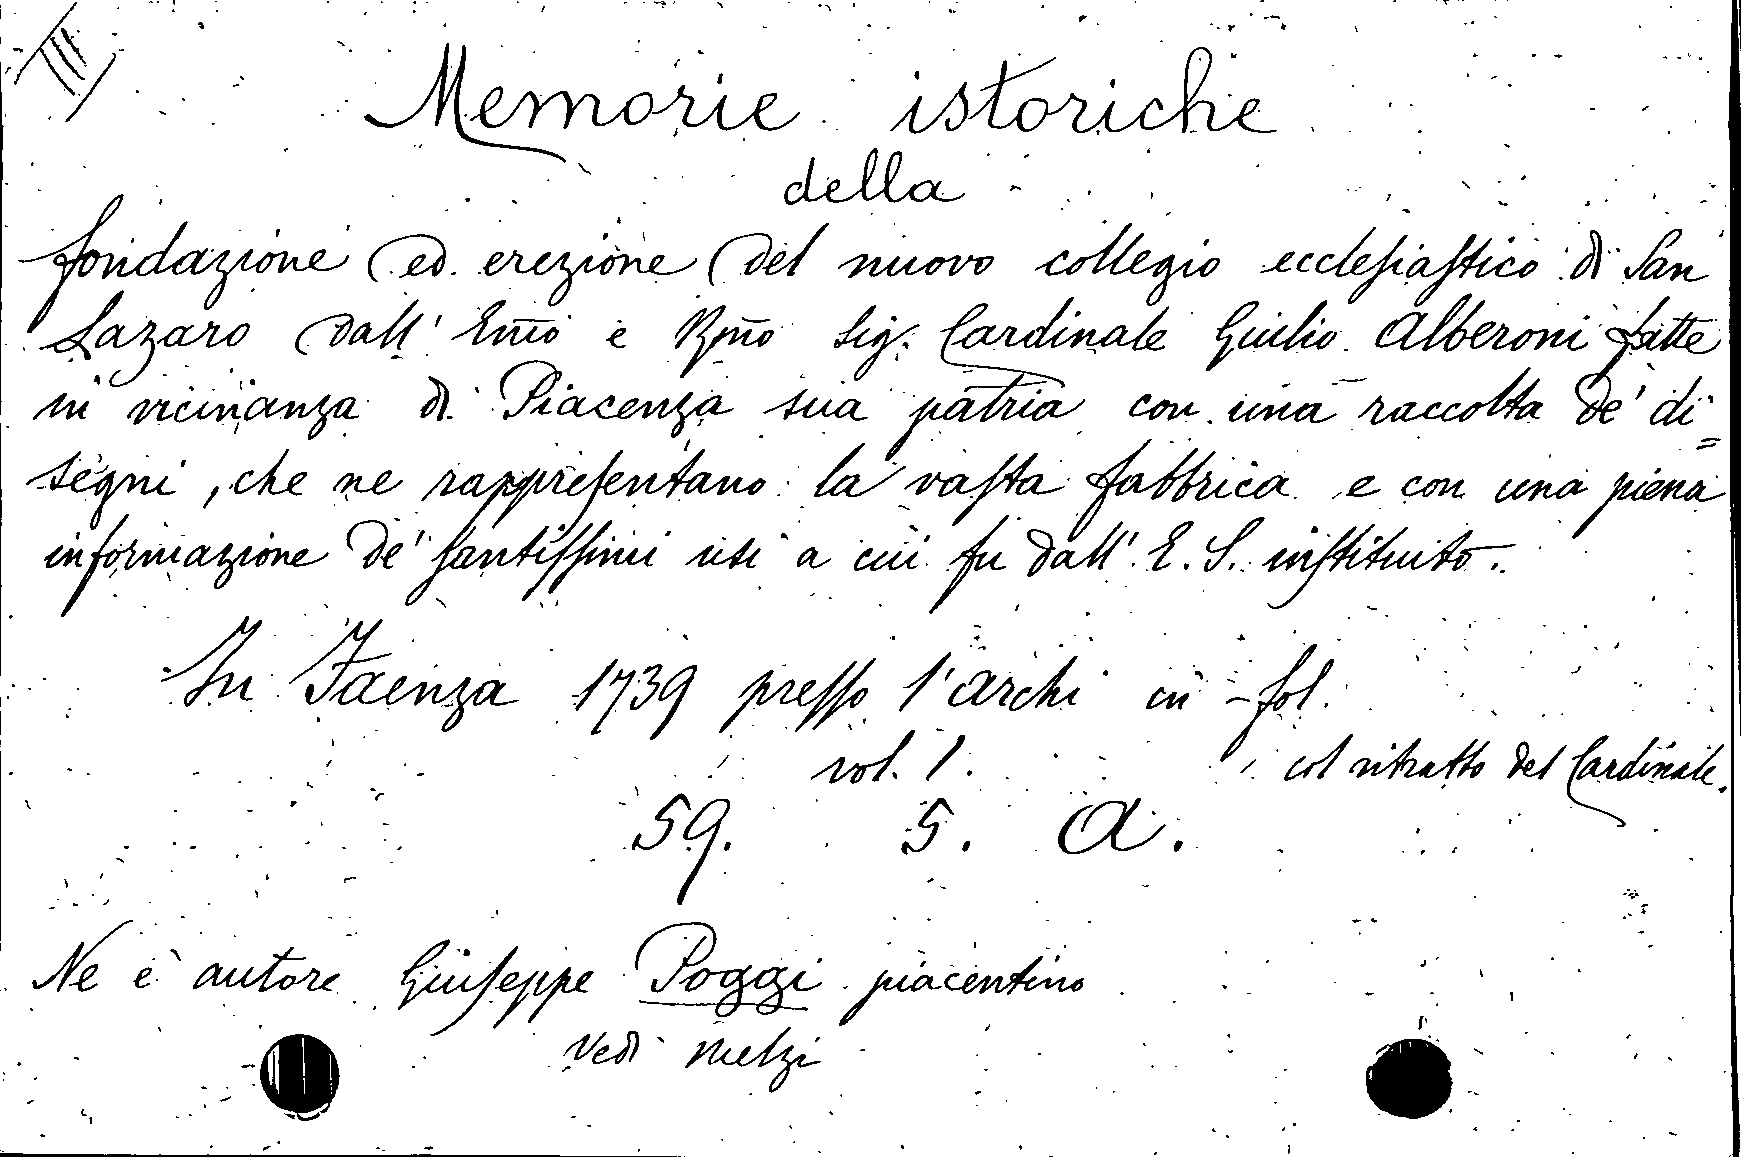 Memorie istoriche
della
fondazione ed erezione del nuovo collegio ecclesiastico di San
Lazaro dall' Em̅o e Rm̅o Sig. Cardinale Giulio Alberoni fatte
in vicinanza di Piacenza sua patria con una raccolta de' di=
segni, che ne rappresentano la vasta fabbrica e con una piena
informazione de' santissimi usi a cui fu dall' E. S. instituito.
In Faenza 1739 presso l'Archi in-fol.
vol. 1. col ritratto del Cardinale.
59. 5. A.
Ne è autore Giuseppe Poggi piacentino
Vedi Melzi